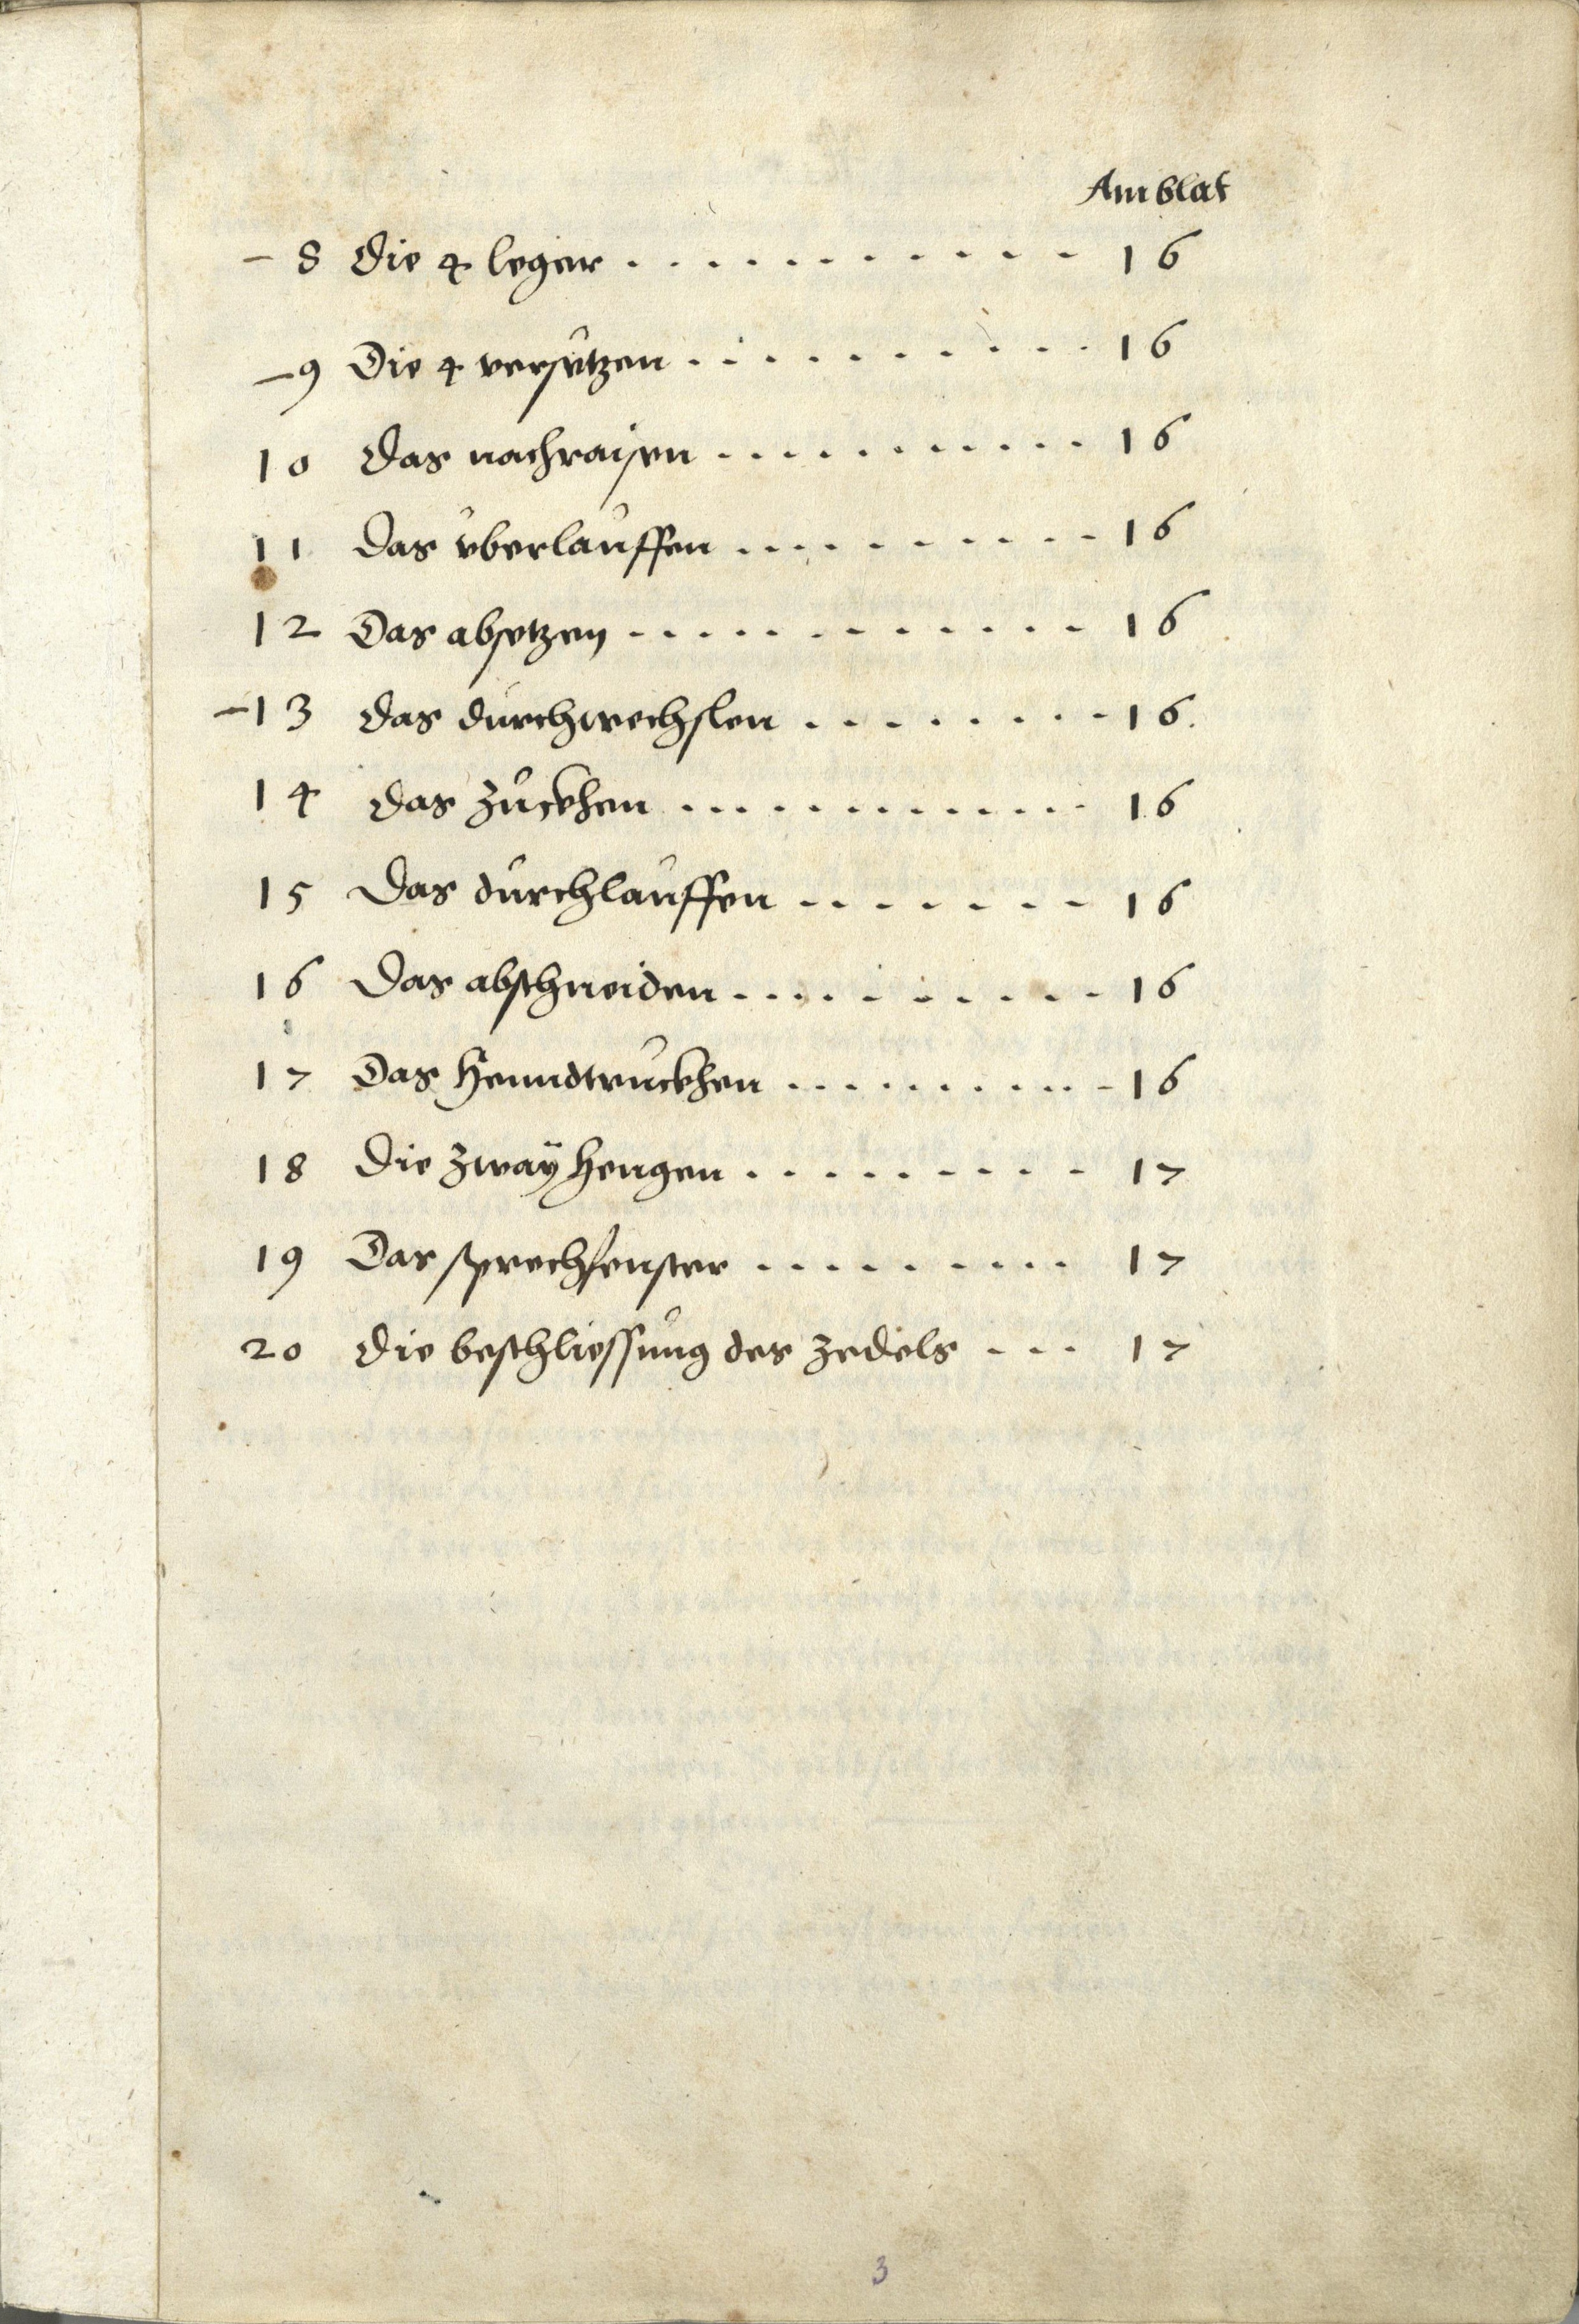 Am blat
– 8 Die 4 leger . . . . . . . . . . . . 16
– 9 Die 4 versetzen . . . . . . . . . . . 16
10 Das nachraisen . . . . . . . . . . 16
11 Das vberlauffen . . . . . . . . . . 16
12 Das absetzen . . . . . . . . . . . . 16
– 13 Das durchwechslen . . . . . . . . 16
14 Das zuckhen . . . . . . . . . . . 16
15 Das durchlauffen . . . . . . . 16
16 Das abschneiden . . . . . . . . . . 16
17 Das henndtruckhen . . . . . . . . . . 16
18 Die zwaÿ hengen . . . . . . . . . 17
19 Das sprechfenster . . . . . . . . . 17
20 Die beschliessung des zedels . . . 17
3